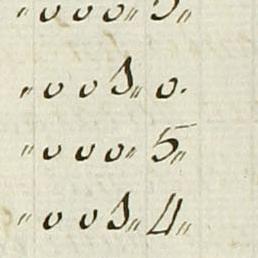 "000"
"001"0.
"000"5"
"001"4"